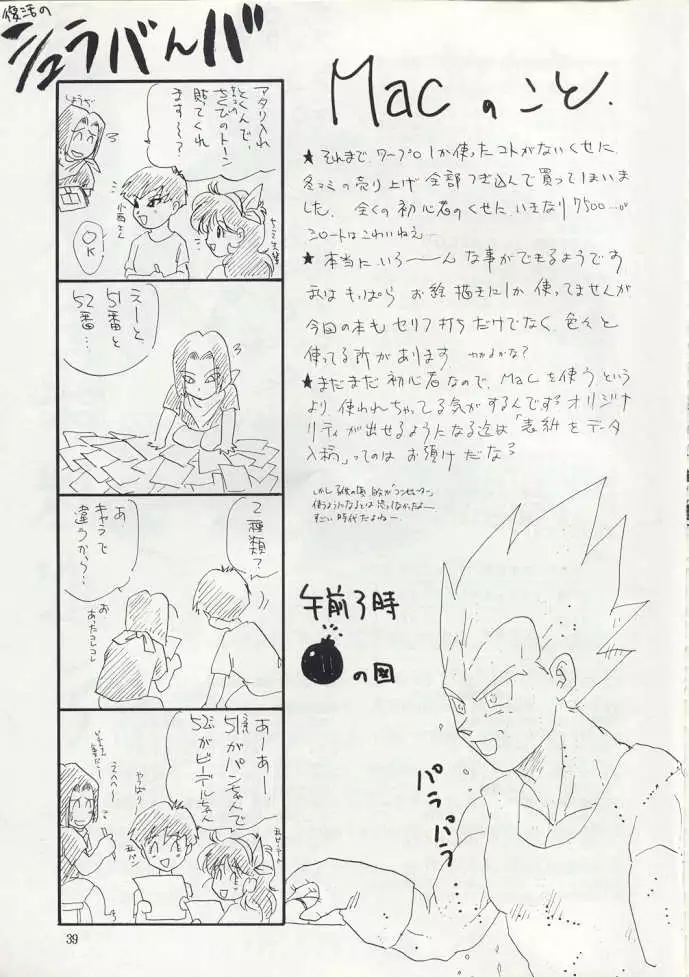 復活の
シュラバんバ
Macのこと.
★それまで、ワープロしか使ったコトがないくせに、
冬コミの売り上げ全部つぎ込んで買ってしまいま
した。全くの初心者のくせにいきなり7500…
シロートはこわいねえ
★本当にいろーーんな事ができるようです
私はもっぱらお絵描きにしか使ってませんが
今回の本もセリフ打ちだけでなく、色々と
使ってる所があります わかるかな?
★まだまだ初心者なので、Macを使うという
より、使われちゃってる気がするんですオリジナ
リティが出せるようになる迄は「表紙をデータ
入稿」ってのはお預けだな
使うようになるとは思ってなかったよー
すごい時代だよねー
午前3時
の図
パラ
パラ
アタリ入れ
とくんで、
トーン
貼ってくれ
ます〜?
OK
えーと、
51番と
52番…
2種類?
あ
キャラで
違うから…
お
あったコレコレ
あーあー
51がパンちゃんで
52がビーデルちゃん
やっぱり
えへへ〜
39